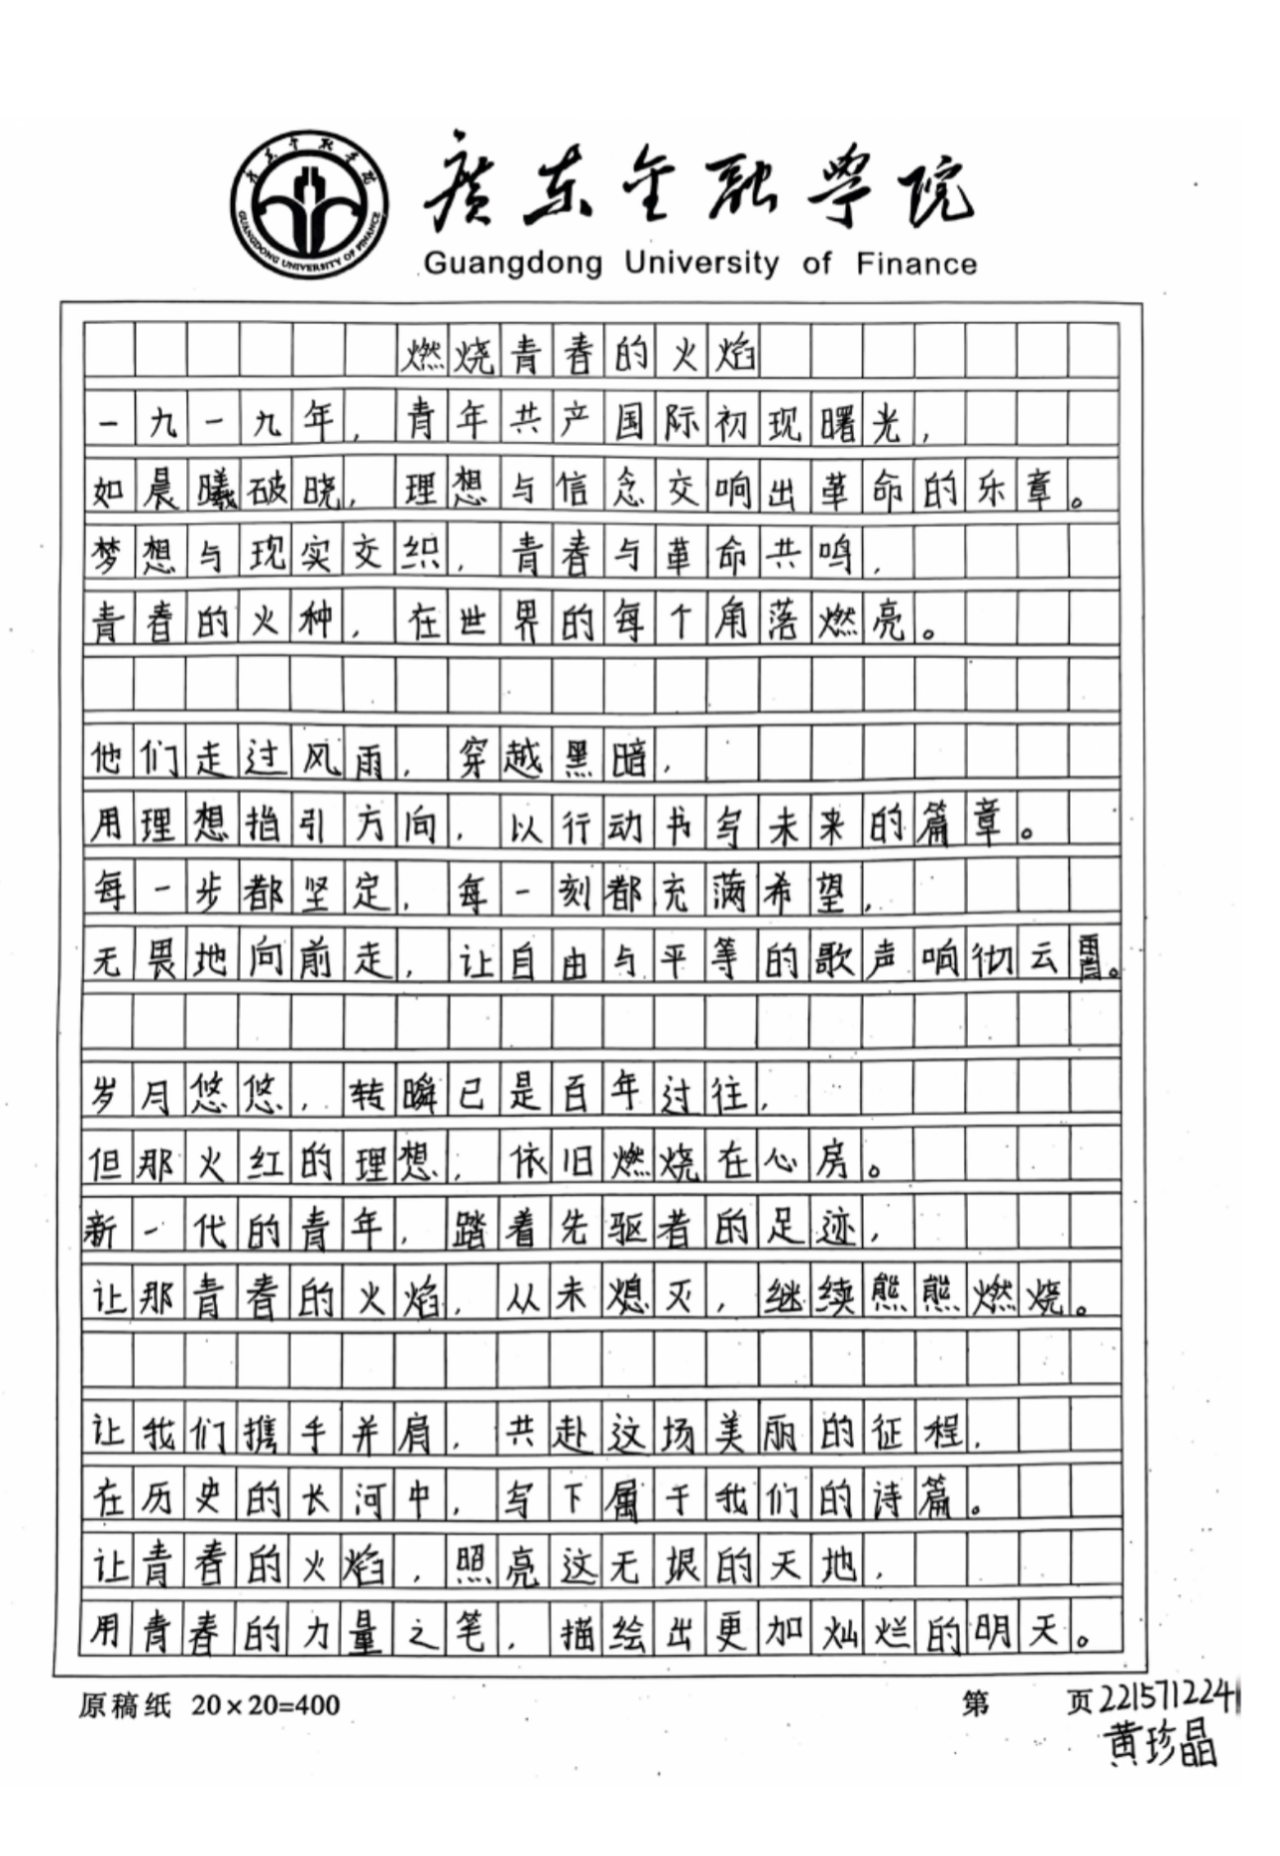 广东金融学院
GUANGDONG UNIVERSITY OF FINANCE
廣东金融學院
Guangdong University of Finance
燃烧青春的火焰
一九一九年，青年共产国际初现曙光，
如晨曦破晓，理想与信念交响出革命的乐章。
梦想与现实交织，青春与革命共鸣，
青春的火种，在世界的每个角落燃亮。
他们走过风雨，穿越黑暗，
用理想指引方向，以行动书写未来的篇章。
每一步都坚定，每一刻都充满希望，
无畏地向前走，让自由与平等的歌声响彻云霄。
岁月悠悠，转瞬已是百年过往，
但那火红的理想，依旧燃烧在心房。
新一代的青年，踏着先驱者的足迹，
让那青春的火焰，从未熄灭，继续熊熊燃烧。
让我们携手并肩，共赴这场美丽的征程，
在历史的长河中，写下属于我们的诗篇。
让青春的火焰，照亮这无垠的天地，
用青春的力量之笔，描绘出更加灿烂的明天。
原稿纸 20×20=400 第 页 221571224
黄珍晶